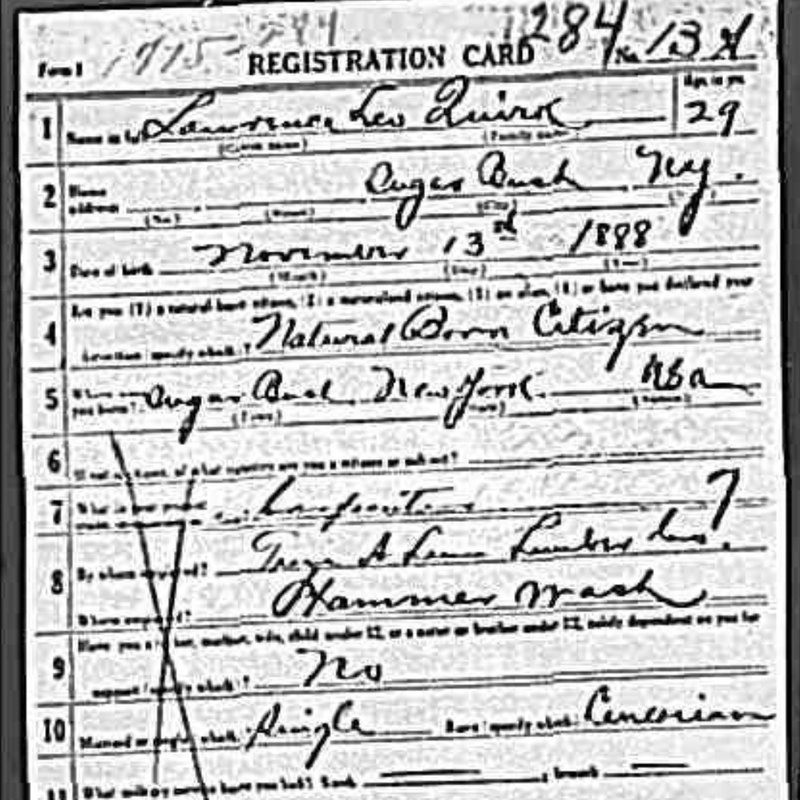 Form 1 1715- 284 No. 13
REGISTRATION CARD
1 Name in full Lawrence Leo Quirk Age in yrs 29
(Given name) (Family name)
2 Home address Sugar Bush N.Y.
(No.) (Street) (City) (State)
3 Date of birth November 13 1888
(Month) (Day) (Year)
Are you (1) a natural born citizen, (2) a naturalized citizen, (3) an alien, (4) or have you declared your
4 intention (specify which)? Natural Born Citizen
5 Where were you born? Sugar Bush New York USA
(Town) (State) (Nation)
6 If not a citizen, of what country are you a citizen or subject?
7 What is your present trade, occupation, or office? Carpenter 7
8 By whom employed? Lumber
Where employed? Hammer Wash
Have you a father, mother, wife, child under 12, or a sister or brother under 12, solely dependent on you for
9 support (specify which)? No
10 Married or single (which)? Single Race (specify which)?
11 What military service have you had? Rank ; branch